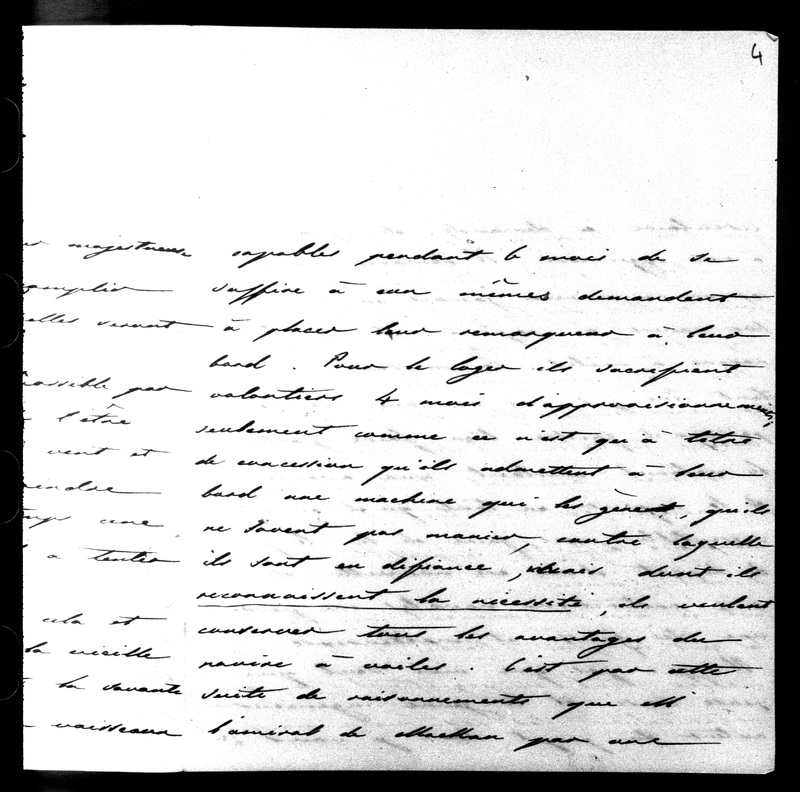 4
majestueuse
elles seront
possible par
l'être
vent et
une
a tenter
cela et
la vieille
la savante
vaisseaux
capables pendant 6 mois de se
suffire à eux mêmes demandent
à placer leur remorqueur à leur
bord. Pour le loger ils sacrifient
volontiers 4 mois d'approvisionnements,
seulement comme ce n'est qu'à titre
de concession qu'ils admettent à leur
bord une machine qui les gènent, qu'ils
ne savent pas manier, contre laquelle
ils sont en défiance, mais dont ils
reconnaissent la nécessité, ils veulent
conserver tous les avantages du
navire à voiles. C'est par cette
suite de raisonnements que M
l'amiral de Mackau par une